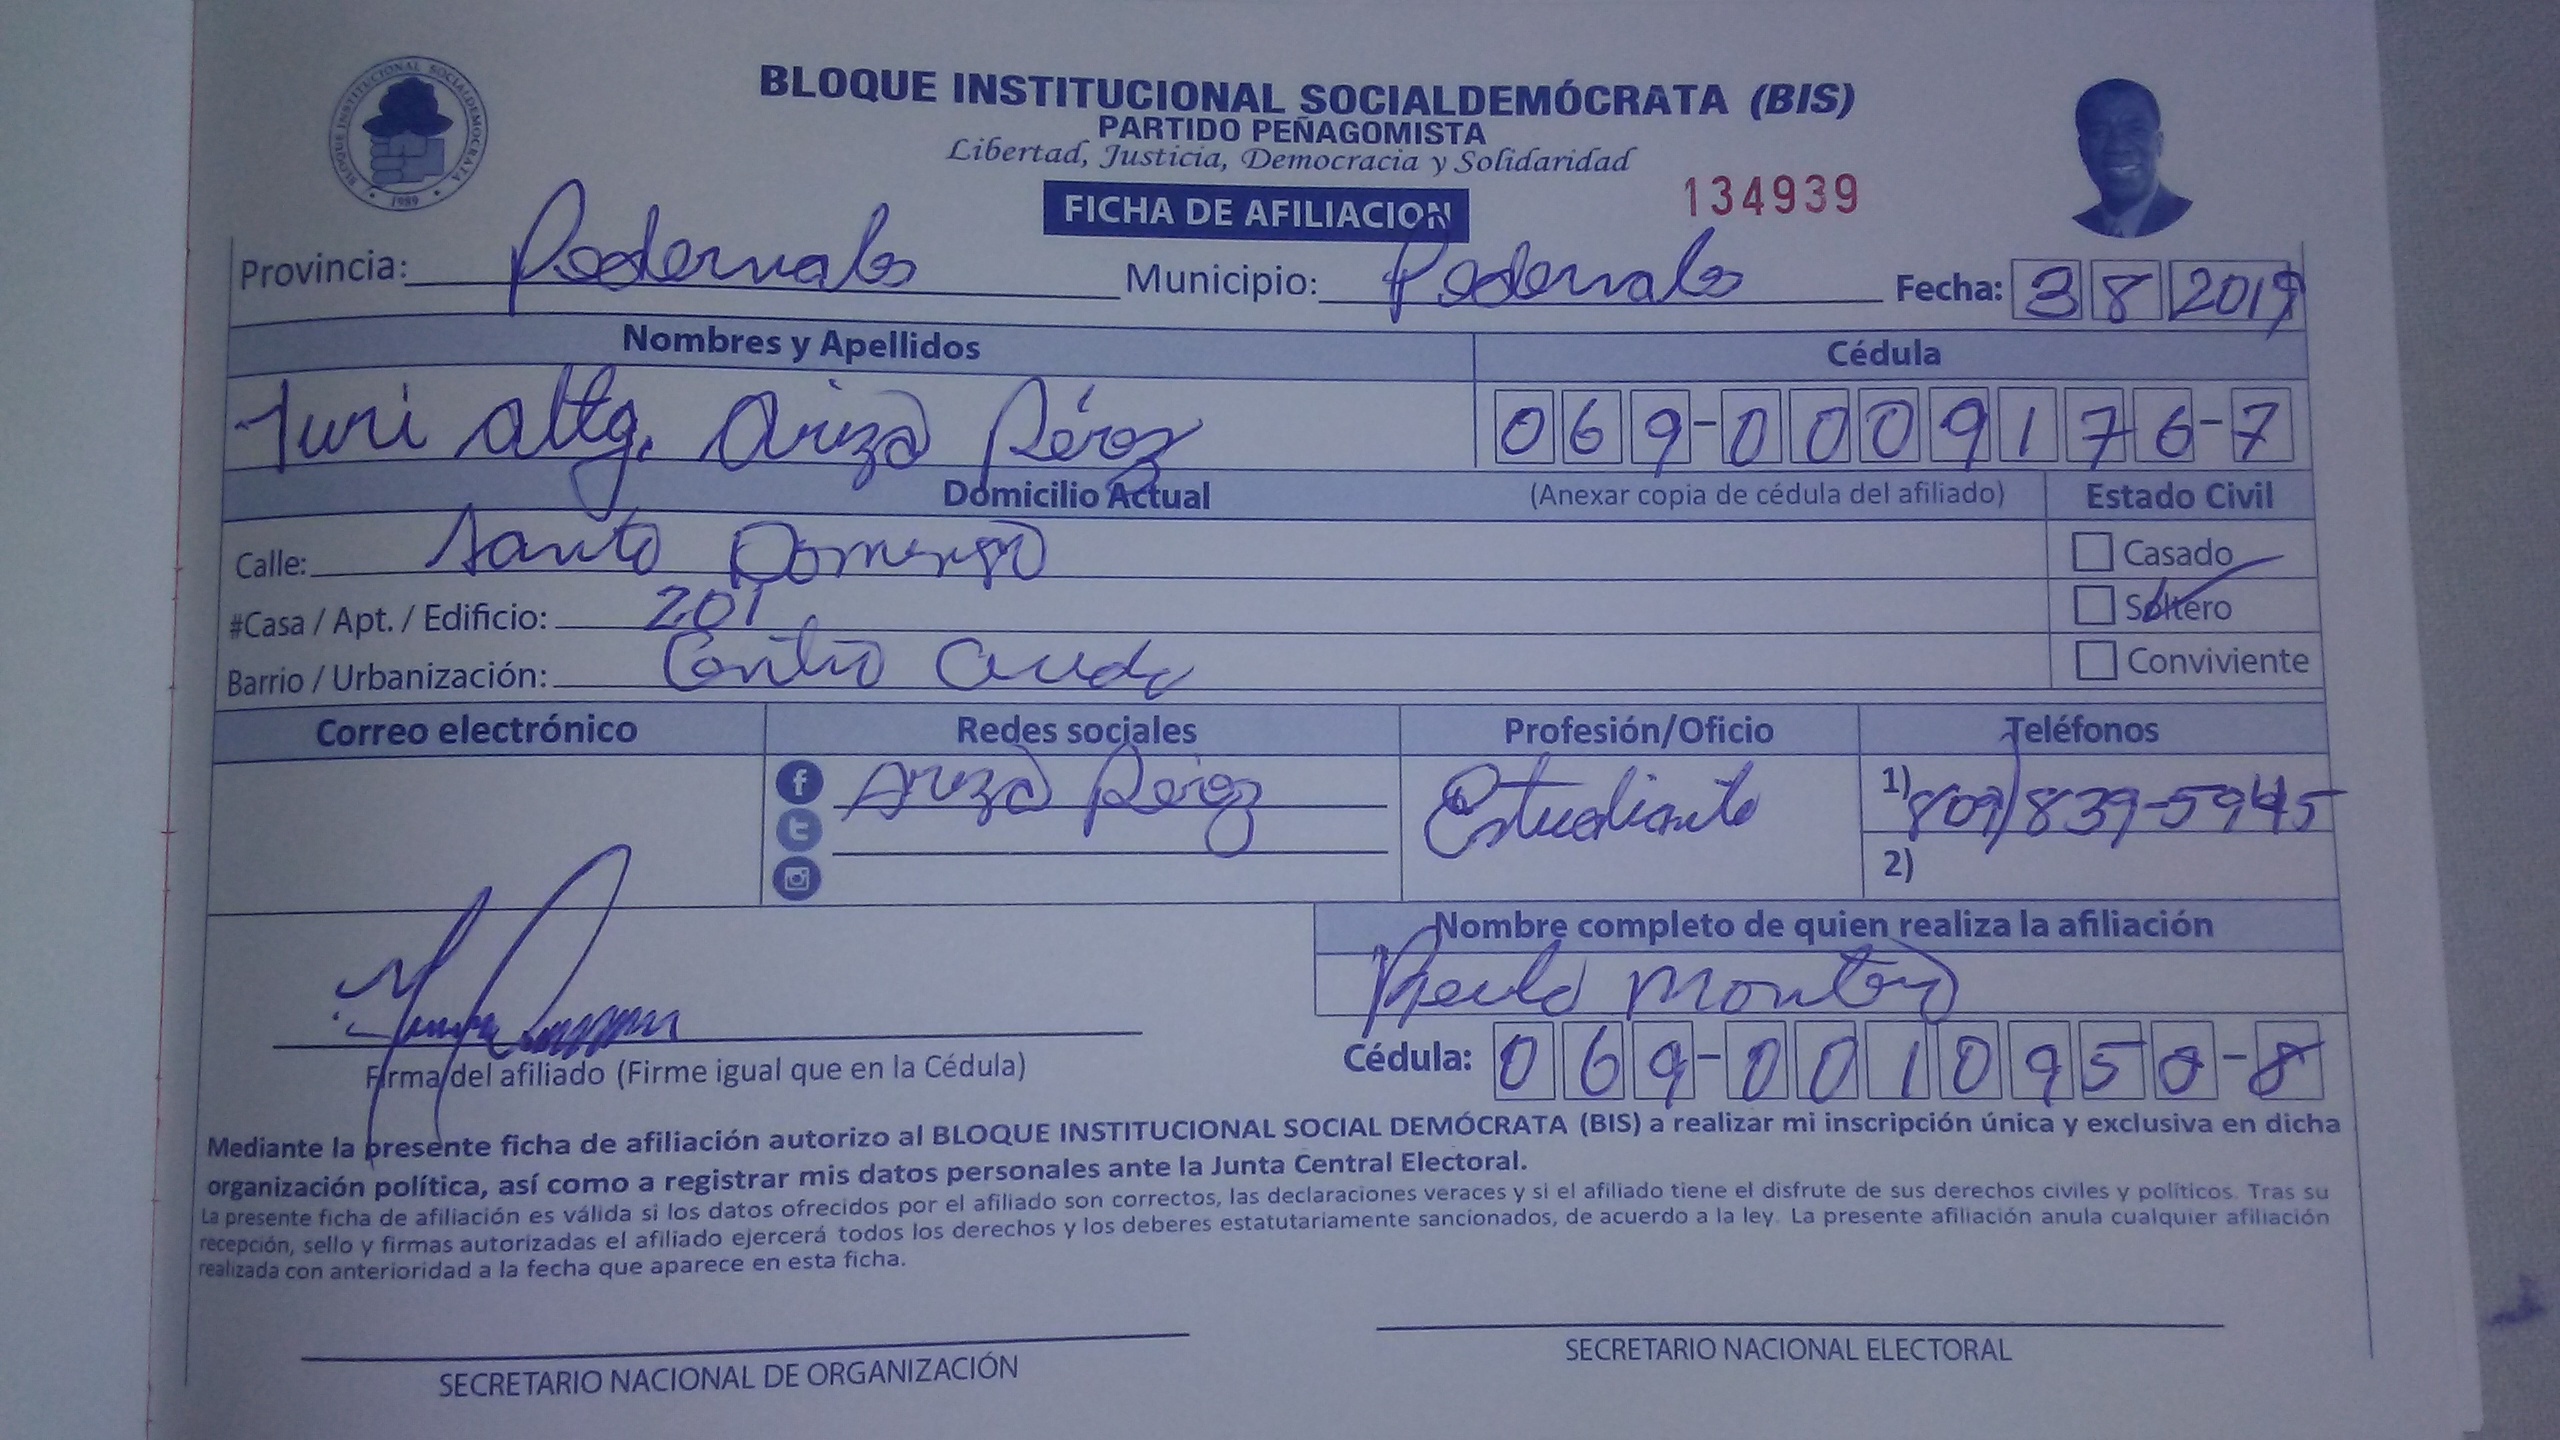 BLOQUE INSTITUCIONAL SOCIALDEMOCRATA
1989
BLOQUE INSTITUCIONAL SOCIALDEMÓCRATA (BIS)
PARTIDO PEÑAGOMISTA
Libertad, Justicia, Democracia y Solidaridad
FICHA DE AFILIACION
134939
Provincia: Pedernales Municipio: Pedernales Fecha: 3 8 2019
Nombres y Apellidos Cédula
Yuri Altg. Ariza Pérez 069-0009176-7
Domicilio Actual (Anexar copia de cédula del afiliado) Estado Civil
Calle: Santo Domingo Casado
#Casa / Apt. / Edificio: 201 Soltero
Barrio / Urbanización: Centro Conviviente
Correo electrónico Redes sociales Profesión/Oficio Teléfonos
Ariza Pérez Estudiante 1) 809/839-5945
2)
Nombre completo de quien realiza la afiliación
Montero
Cédula: 069-0010950-8
Firma del afiliado (Firme igual que en la Cédula)
Mediante la presente ficha de afiliación autorizo al BLOQUE INSTITUCIONAL SOCIAL DEMÓCRATA (BIS) a realizar mi inscripción única y exclusiva en dicha
organización política, así como a registrar mis datos personales ante la Junta Central Electoral.
La presente ficha de afiliación es válida si los datos ofrecidos por el afiliado son correctos, las declaraciones veraces y si el afiliado tiene el disfrute de sus derechos civiles y políticos. Tras su
recepción, sello y firmas autorizadas el afiliado ejercerá todos los derechos y los deberes estatutariamente sancionados, de acuerdo a la ley. La presente afiliación anula cualquier afiliación
realizada con anterioridad a la fecha que aparece en esta ficha.
SECRETARIO NACIONAL DE ORGANIZACIÓN SECRETARIO NACIONAL ELECTORAL